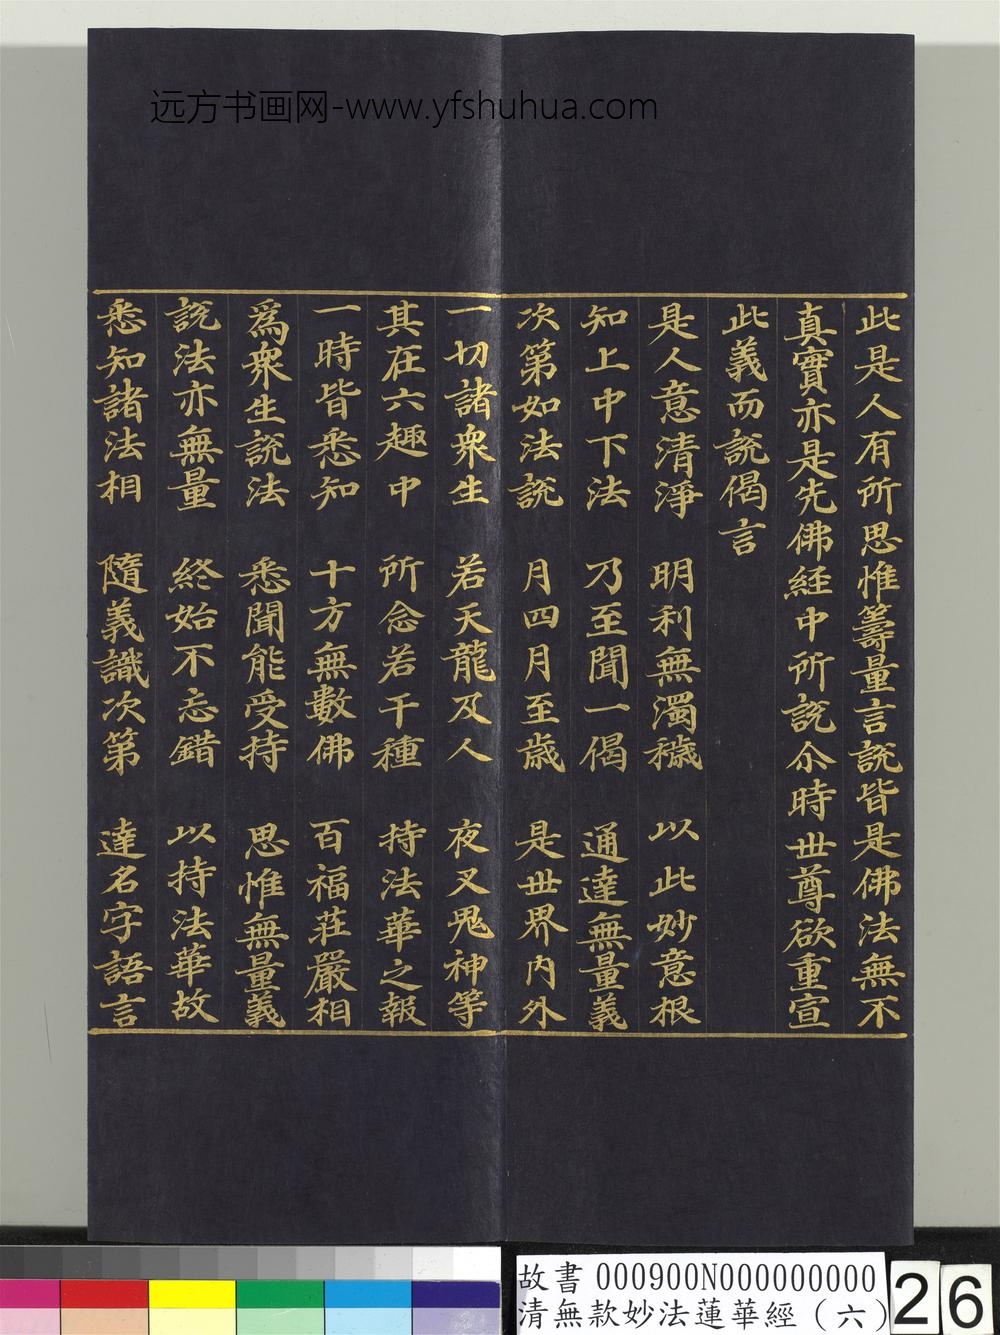 远方书画网-www.yfshuhua.com
此是人有所思惟籌量言說皆是佛法無不
真實亦是先佛經中所說尒時世尊欲重宣
此義而說偈言
是人意清淨 明利無濁穢 以此妙意根
知上中下法 乃至聞一偈 通達無量義
次第如法說 月四月至歲 是世界內外
一切諸衆生 若天龍及人 夜叉鬼神等
其在六趣中 所念若干種 持法華之報
一時皆悉知 十方無數佛 百福莊嚴相
爲衆生說法 悉聞能受持 思惟無量義
說法亦無量 終始不忘錯 以持法華故
悉知諸法相 隨義識次第 達名字語言
故書 000900N000000000
清無款妙法蓮華經（六）
26